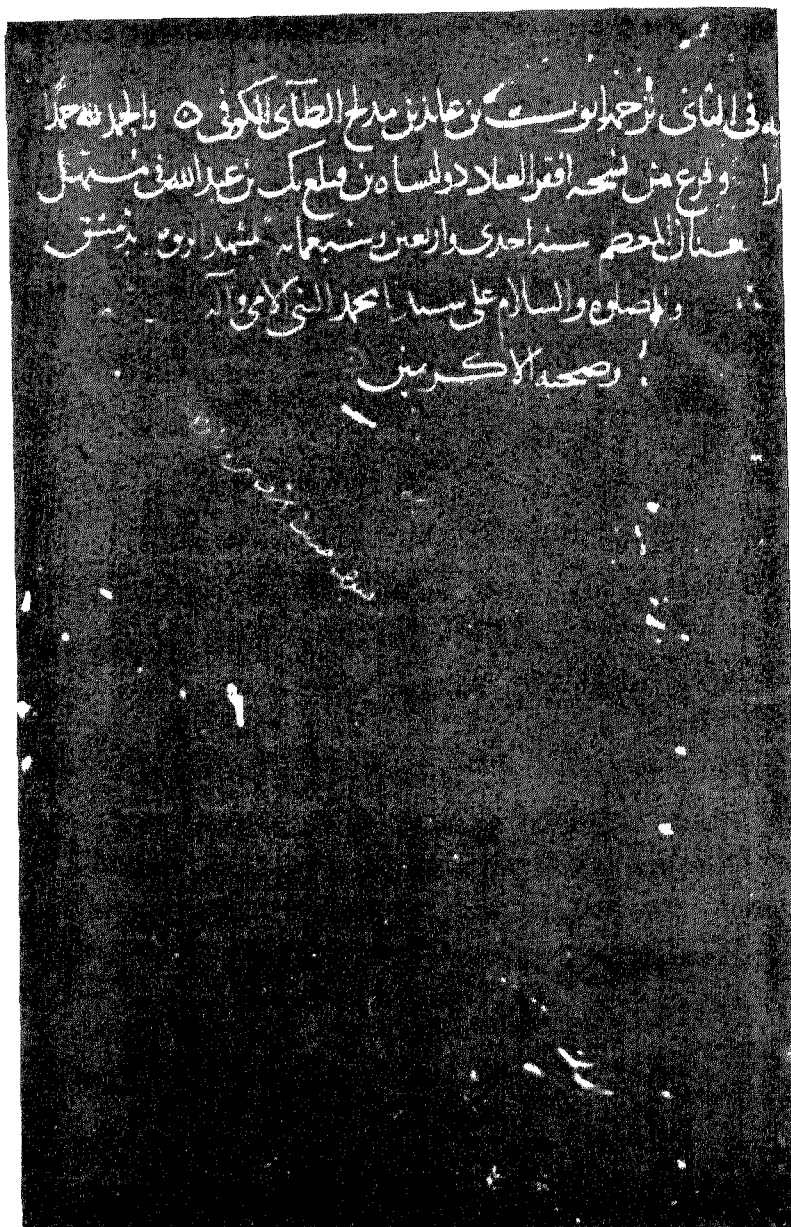 ـه في الثاني ترجمة ايوب بن عائذ بن مدلج الطائي الكوفي ٥ والحمد لله حمدًا
ـرا وفرغ من نسخه افقر العباد دولتساه بن قلع بك بن عبد الله في مستهل
شعبان المعظم سنة احدى واربعين وسبعمايه بمشهد عروة بدمشق
والصلوه والسلام على سيدنا محمد النبي الامي وآله
وصحبه الاكرمين